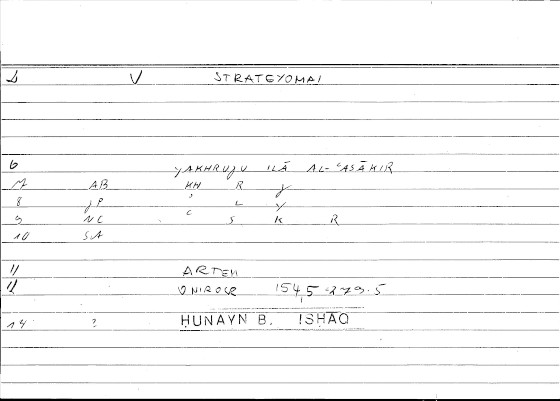 2 V STRATEYOMAI
6 YAKHRUJU ILĀ AL-ʿASĀKIR
7 AB KH R J
8 JP ʾ L Y
9 NC ʿ S K R
10 SA
11 ARTEM
12 ONIROCR 154,5 - 279.5
14 ? ḤUNAYN B. ISḤĀQ